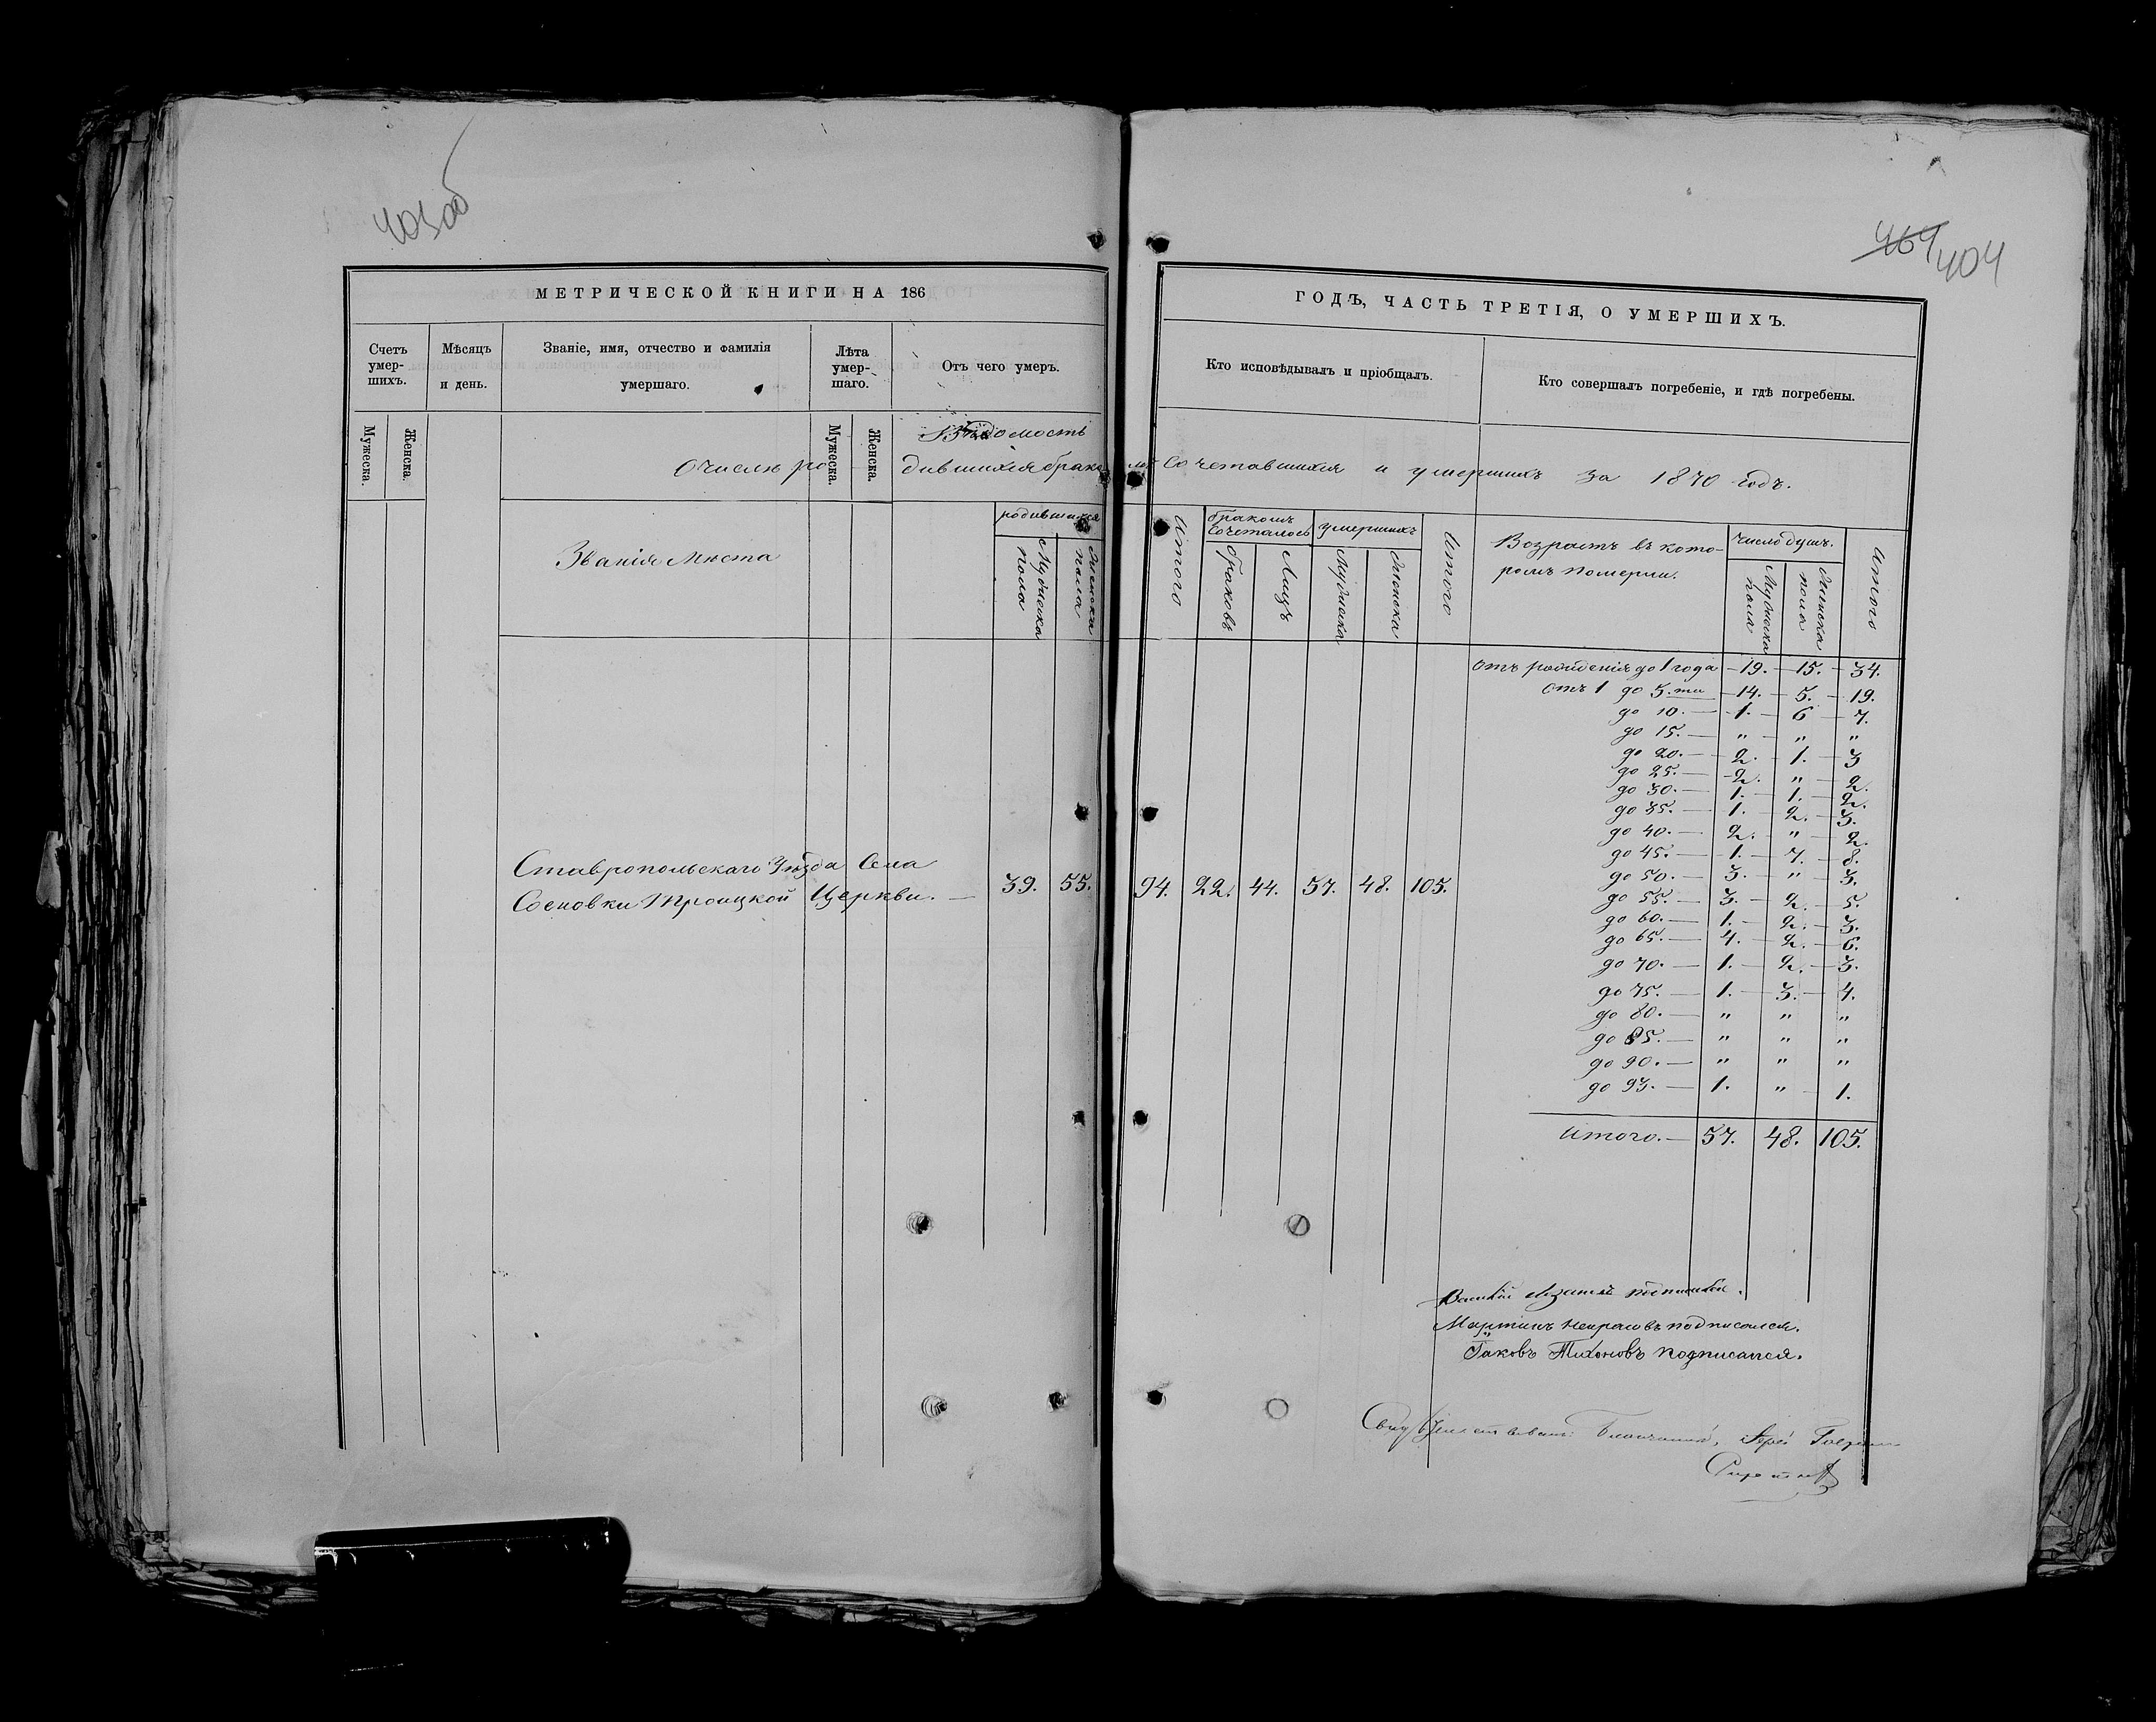 403об
469 404
МЕТРИЧЕСКОЙ КНИГИ НА 186
Счетъ умер-шихъ.
Мѣсяцъ и день.
Званіе, имя, отчество и фамилія умершаго.
Лѣта умер-шаго.
Отъ чего умеръ.
Мужеска.
Женска.
Мужеска.
Женска.
ГОДЪ, ЧАСТЬ ТРЕТІЯ, О УМЕРШИХЪ.
Кто исповѣдывалъ и пріобщалъ.
Кто совершалъ погребеніе, и гдѣ погребены.
Вѣдомость
О числѣ родившихся бракомъ сочетавшихся и умершихъ за 1870 годъ.
Званія Мѣста
родившихся
Мужеска пола
Женска пола
Итого
бракомъ сочеталось
Браковъ
Лицъ
умершихъ
Мужеска
Женска
Итого
Возрастъ въ кото-
ромъ померли.
Число душъ.
Мужеска пола
Женска пола
Итого
Ставропольскаго Уѣзда Села
Сосновки Троицкой Церкви. — 39. 55. 94. 22. 44. 57. 48. 105.
Отъ рожденія до 1 года — 19. — 15. — 34.
Отъ 1 до 5.ти — 14. — 5. — 19.
до 10. — 1. — 6 — 7.
до 15. — " — " — "
до 20. — 2. — 1. — 3
до 25. — 2. " — 2.
до 30. — 1. — 1. — 2.
до 35. — 1. — 2. — 3.
до 40. — 2. — " — 2.
до 45. — 1. — 7. — 8.
до 50. — 3. — " — 3.
до 55. — 3. — 2. — 5.
до 60. — 1. — 2. — 3.
до 65. — 4. — 2. — 6.
до 70. — 1. — 2. — 3.
до 75. — 1. — 3. — 4.
до 80. — " " "
до 85. — " " "
до 90. — " " "
до 93. — 1. " — 1.
Итого. — 57. 48. 105.
подписался.
Мартинъ Некрасовъ подписался.
Іаковъ Тихоновъ подписался.
Свидѣтельствовалъ: Благочинный, Іерей